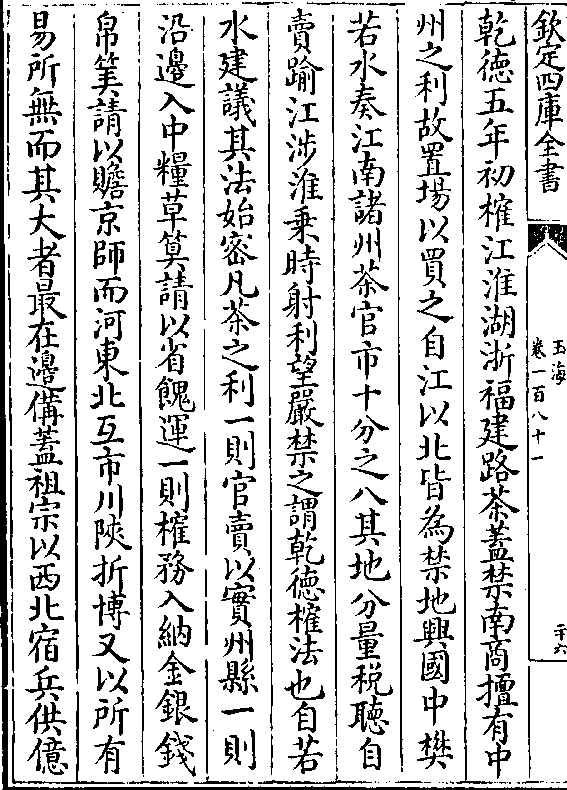 欽定四庫全書
玉海
卷一百八十一
二十六
乾徳五年初榷江淮湖浙福建路茶蓋禁南商擅有中
州之利故置塲以買之自江以北皆為禁地興國中樊
若水奏江南諸州茶官市十分之八其地分量税聽自
賣踰江涉淮乗時射利望嚴禁之謂乾徳榷法也自若
水建議其法始密凡茶之利一則官賣以實州縣一則
沿邊入中糧草筭請以省餽運一則榷務入納金銀錢
帛筭請以贍京師而河東北互市川陜折博又以所有
易所無而其大者最在邊備蓋祖宗以西北宿兵供億